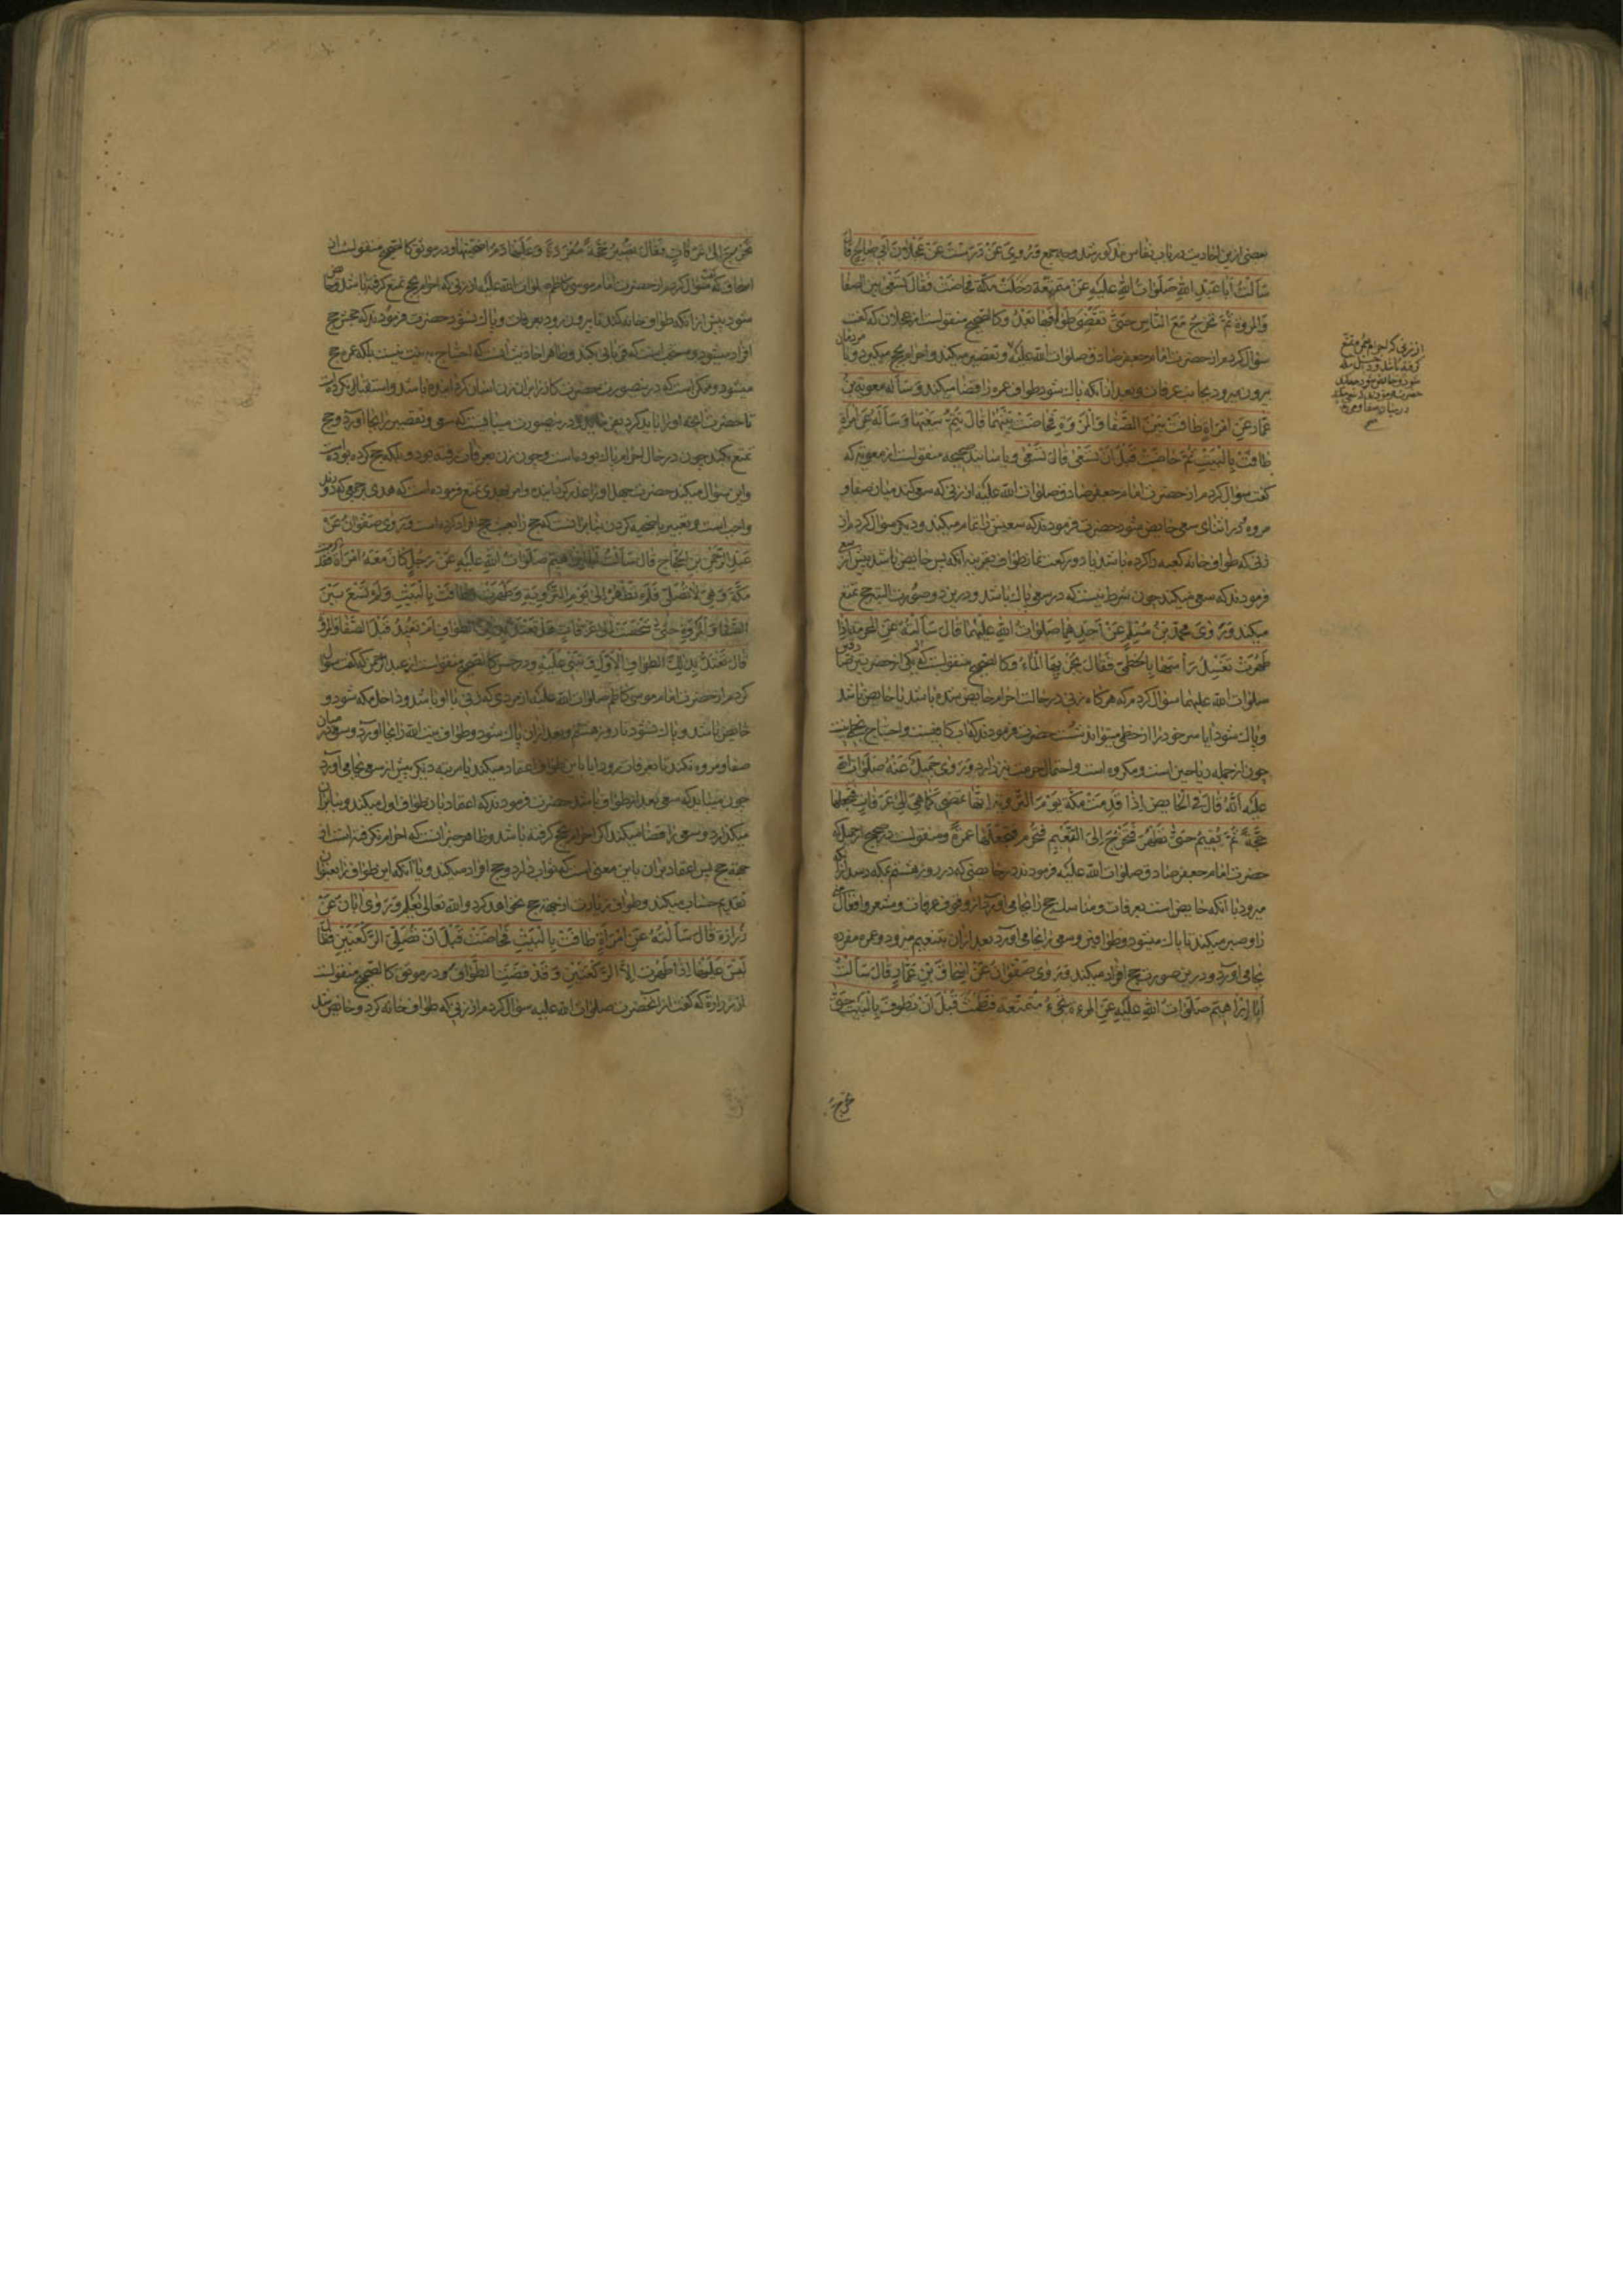 بعضی ازین احادیث در باب نفاس مذکور شد و به جمع وَرُوِیَ عَنْ دُرُسْتَ عَنْ عَجْلَانَ اَبِی صَالِحٍ قَالَ
سَاَلْتُ اَبَا عَبْدِ اللهِ صَلَوَاتُ اللهِ عَلَیْهِ عَنْ مُتَمَتِّعَةٍ دَخَلَتْ مَکَّةَ فَحَاضَتْ فَقَالَ تَسْعَی بَیْنَ الصَّفَا
وَالْمَرْوَةِ ثُمَّ تَخْرُجُ مَعَ النَّاسِ حَتَّی تَقْضِیَ طَوَافَهَا بَعْدُ و کالصحیح منقولست از عجلان که گفت
سؤال کردم از حضرت امام جعفر صادق صلوات الله علیه و تقصیر میکند و احرام بحج میگیرد و با مردمان
بیرون میرود بجانب عرفات و بعد از آنکه پاک شود طواف عمره را قضا میکند وَسَاَلَهُ مُعٰوِیَةُ بْنُ
عَمَّارٍ عَنِ امْرَاَةٍ طَافَتْ بَیْنَ الصَّفَا وَالْمَرْوَةِ فَحَاضَتْ بَیْنَهُمَا قَالَ تُتِمُّ سَعْیَهَا وَسَاَلَهُ عَنِ امْرَاَةٍ
طَافَتْ بِالْبَیْتِ ثُمَّ حَاضَتْ قَبْلَ اَنْ تَسْعَی قَالَ تَسْعَی و باسانید صحیحه منقولست از معویه که
گفت سؤال کردم از حضرت امام جعفر صادق صلوات الله علیه از زنی که سعی کند میان صفا و
مروه در اثنای سعی حایض شود حضرت فرمودند که سعیش را تمام میکند و دیگر سؤال کردم از
زنی که طواف خانه کعبه را کرده باشد با دو رکعت نماز طواف بقرینه آنکه پس حایض باشد پیش از سعی
فرمودند که سعی میکند چون شرط نیست که در سعی پاک باشد و درین دو صورت البته حج تمتع
میکند وَرَوَی مُحَمَّدُ بْنُ مُسْلِمٍ عَنْ اَحَدِهِمَا صلوات الله علیهما قَالَ سَاَلْتُهُ عَنِ الْمُحْرِمَةِ اِذَا
طَهُرَتْ تَغْسِلُ رَاْسَهَا بِالْخِطْمِیِّ فَقَالَ یُجْزِیهَا الْمَاءُ و کالصحیح منقولست که یکی از حضرتین صادقین
صلوات الله علیهما سؤال کردم که هرگاه زنی در حالت احرام حایض شده باشد یا حایض باشد
و پاک شود آیا سر خود را از خطمی میتواند شست حضرت فرمودند که آب کافیست و احتیاج بخطمی نیست
چون از جمله ریاحین است و مکروه است و احتمال حرمت نیز دارد وَرَوَی جَمِیلٌ عَنْهُ صَلَوَاتُ اللهِ
عَلَیْهِ اَنَّهُ قَالَ فِی الْحَایِضِ اِذَا قَدِمَتْ مَکَّةَ یَوْمَ التَّرْوِیَةِ اِنَّهَا تَمْضِی کَمَا هِیَ اِلَی عَرَفَاتٍ فَتَجْعَلُهَا
حَجَّةً ثُمَّ تُقِیمُ حَتَّی تَطْهُرَ فَتَخْرُجُ اِلَی التَّنْعِیمِ فَتُحْرِمُ فَتَجْعَلُهَا عُمْرَةً و منقولست در صحیح از جمیل که
حضرت امام جعفر صادق صلوات الله علیه فرمودند در حایضی که در روز هشتم بمکه رسد از آنکه
میرود با آنکه حایض است بعرفات و مناسک حج را بجا می آورد از وقوف عرفات و مشعر و افعال منی
را و صبر میکند تا پاک میشود و طوافین و سعی را بجا می آورد بعد از آن بتنعیم میرود و عمره مفرده
بجا می آورد و درین صورت حج افراد میکند وَرَوَی صَفْوَانُ عَنْ اِسْحٰقَ بْنِ عَمَّارٍ قَالَ سَاَلْتُ
اَبَا اِبْرَاهِیمَ صَلَوَاتُ اللهِ عَلَیْهِ عَنِ الْمَرْءَةِ تَجِیءُ مُتَمَتِّعَةً فَتَطْمَثُ قَبْلَ اَنْ تَطُوفَ بِالْبَیْتِ حَتَّی
تخرج
از زنی که احرام بعمره تمتع
گرفته باشد و داخل مکه
شود و حایض شود
حضرت فرمودند که سعی میکند
در میان صفا و مروه
تَخْرُجَ اِلَی عَرَفَاتٍ فَقَالَ تَصِیرُ حَجَّةً مُفْرَدَةً وَعَلَیْهَا دَمُ اُضْحِیَّتِهَا و در موثق کالصحیح منقولست از
اسحاق که گفت سؤال کردم از حضرت امام موسی کاظم صلوات الله علیه از زنی که احرام بحج تمتع گرفته باشد و حایض
شود پیش از آنکه طواف خانه کند تا بیرون رود بعرفات و پاک نشود حضرت فرمودند که حجش حج
افراد میشود و مستحب است که قربانی بکند و ظاهر احادیث آنست که احتیاج به نیت نیست بلکه عمره حج
میشود و ممکن است که درینصورت
تا حضرت درینصورت میبایست که سعی و تقصیر را بجا آورد و حج
تمتع بکند چون در حال احرام پاک بوده است و چون زن بعرفات رفته بود و بلکه حج کرده بود
و این سؤال میکند حضرت جهل او را عذر گردانیده و امر بهدی تمتع فرموده است که هدی
واجب است و تعبیر باضحیه کردن بنابر آنست که حج را بحسب حج افراد کرده است وَرَوَی صَفْوَانُ عَنْ
عَبْدِ الرَّحْمٰنِ بْنِ الْحَجَّاجِ قَالَ سَاَلْتُ اَبَا اِبْرٰهِیمَ صَلَوَاتُ اللهِ عَلَیْهِ عَنْ رَجُلٍ کَانَ مَعَهُ امْرَاَةٌ فَقَدِمَتْ
مَکَّةَ وَهِیَ لَا تُصَلِّی فَلَمْ تَطْهُرْ اِلَی یَوْمِ التَّرْوِیَةِ وَطَهُرَتْ وَطَافَتْ بِالْبَیْتِ وَلَمْ تَسْعَ بَیْنَ
الصَّفَا وَالْمَرْوَةِ حَتَّی شَخَصَتْ اِلَی عَرَفَاتٍ هَلْ تَعْتَدُّ بِذٰلِکَ الطَّوَافِ اَمْ تُعِیدُ قَبْلَ الصَّفَا وَالْمَرْوَةِ
قَالَ تَعْتَدُّ بِذٰلِکَ الطَّوَافِ الْاَوَّلِ وَتَبْنِی عَلَیْهِ و در حسن کالصحیح منقولست از عبدالرحمن که گفت سؤال
کردم از حضرت امام موسی کاظم صلوات الله علیه از مردی که زنی با او باشد و داخل مکه شود و
حایض باشد و پاک نشود تا روز هشتم و بعد از آن پاک شود و طواف بیت الله را بجا آورد و سعی میان
صفا و مروه نکند تا بعرفات رود آیا باین طواف اعتقاد میکند یا مرتبه دیگر پیش از سعی بجا می آورد
چون میباید که سعی بعد از طواف باشد حضرت فرمودند که اعتقاد بان طواف اول میکند و بنا بر آن
میگذارد و سعی را قضا میکند اگر احرام بحج گرفته باشد و ظاهر خبر آنست که احرام نگرفته است از
جهة حج پس اعتقاد بر آن باین معنی است که ثواب دارد و حج افراد میکند و یا آنکه این طواف را بعنوان
تقدیم حساب میکند و طواف زیارت از جهة حج نخواهد کرد والله تعالی یعلم وَرَوَی اَبَانٌ عَنْ
زُرَارَةَ قَالَ سَاَلْتُهُ عَنِ امْرَاَةٍ طَافَتْ بِالْبَیْتِ فَحَاضَتْ قَبْلَ اَنْ تُصَلِّیَ الرَّکْعَتَیْنِ فَقَالَ
لَیْسَ عَلَیْهَا اِذَا طَهُرَتْ اِلَّا الرَّکْعَتَیْنِ وَقَدْ قَضَتِ الطَّوَافَ و در موثق کالصحیح منقولست
از زراره که گفت از آنحضرت صلوات الله علیه سؤال کردم از زنی که طواف خانه کرد و حایض شد